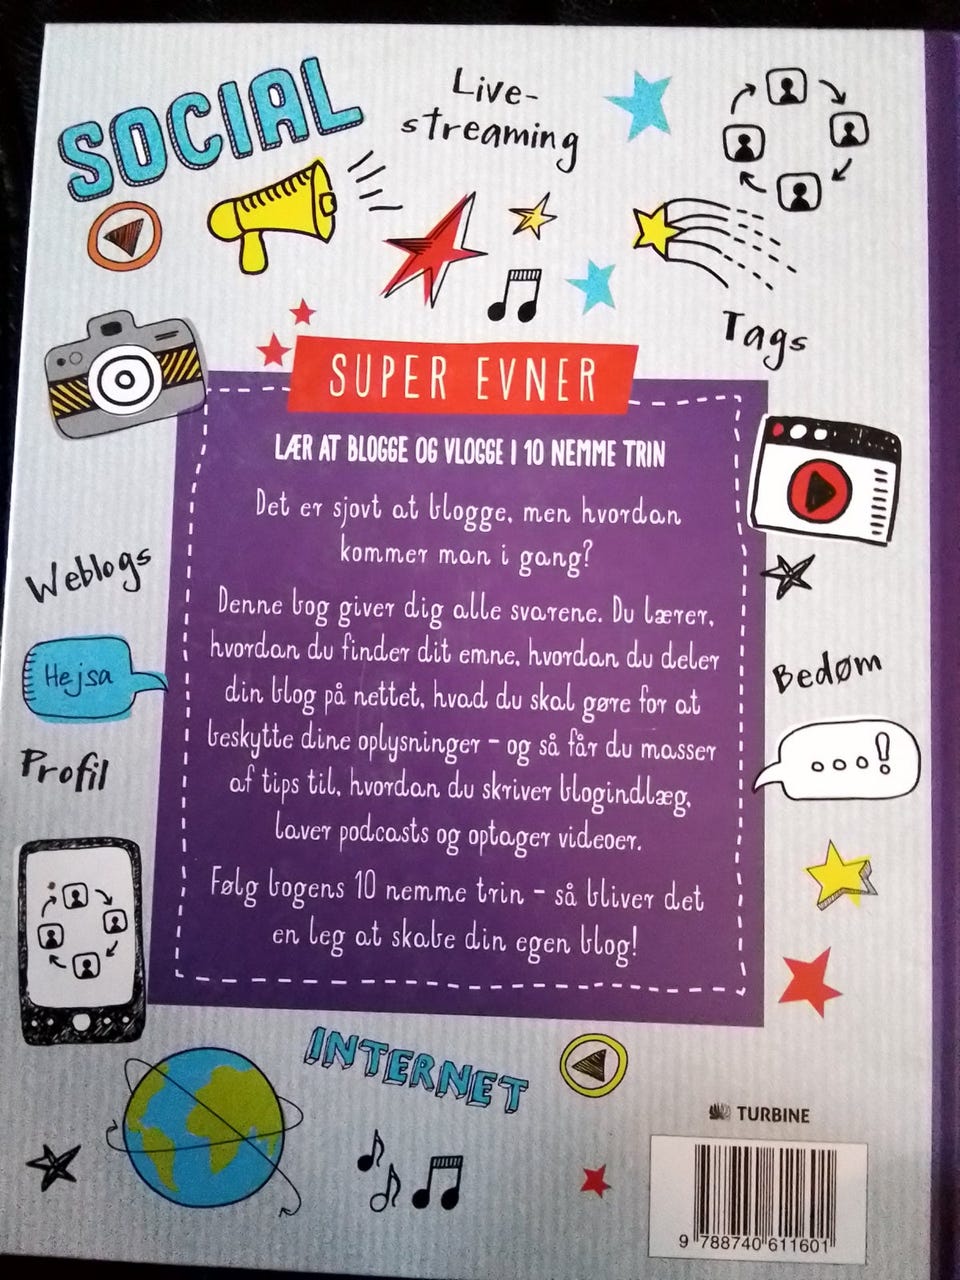 SOCIAL
Live-
streaming
Tags
SUPER EVNER
LÆR AT BLOGGE OG VLOGGE I 10 NEMME TRIN
Det er sjovt at blogge, men hvordan
kommer man i gang?
Denne bog giver dig alle svarene. Du lærer,
hvordan du finder dit emne, hvordan du deler
din blog på nettet, hvad du skal gøre for at
beskytte dine oplysninger – og så får du masser
af tips til, hvordan du skriver blogindlæg,
laver podcasts og optager videoer.
Følg bogens 10 nemme trin – så bliver det
en leg at skabe din egen blog!
Weblogs
Hejsa
Profil
Bedøm
ooo!
INTERNET
TURBINE
9 788740 611601